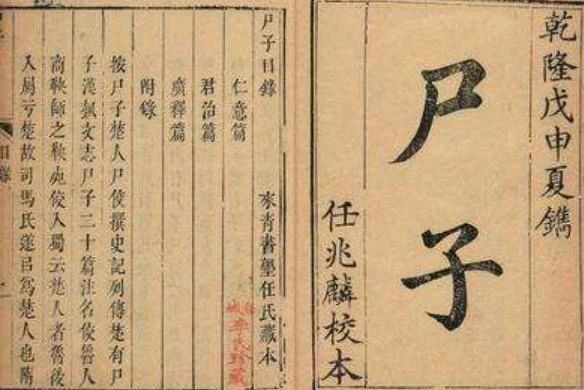 乾隆戊申夏鐫
尸子
任兆麟校本
尸子目錄 來青書塾任氏藏本
仁意篇
城李氏珍藏
君治篇
廣釋篇
附錄
按尸子楚人尸佼撰史記列傳楚有尸
子漢蓺文志尸子二十篇注名佼魯人
商鞅師之鞅死佼入蜀云楚人者魯後
入屬亏楚故司馬氏遂㠯爲楚人也隋
目錄 一